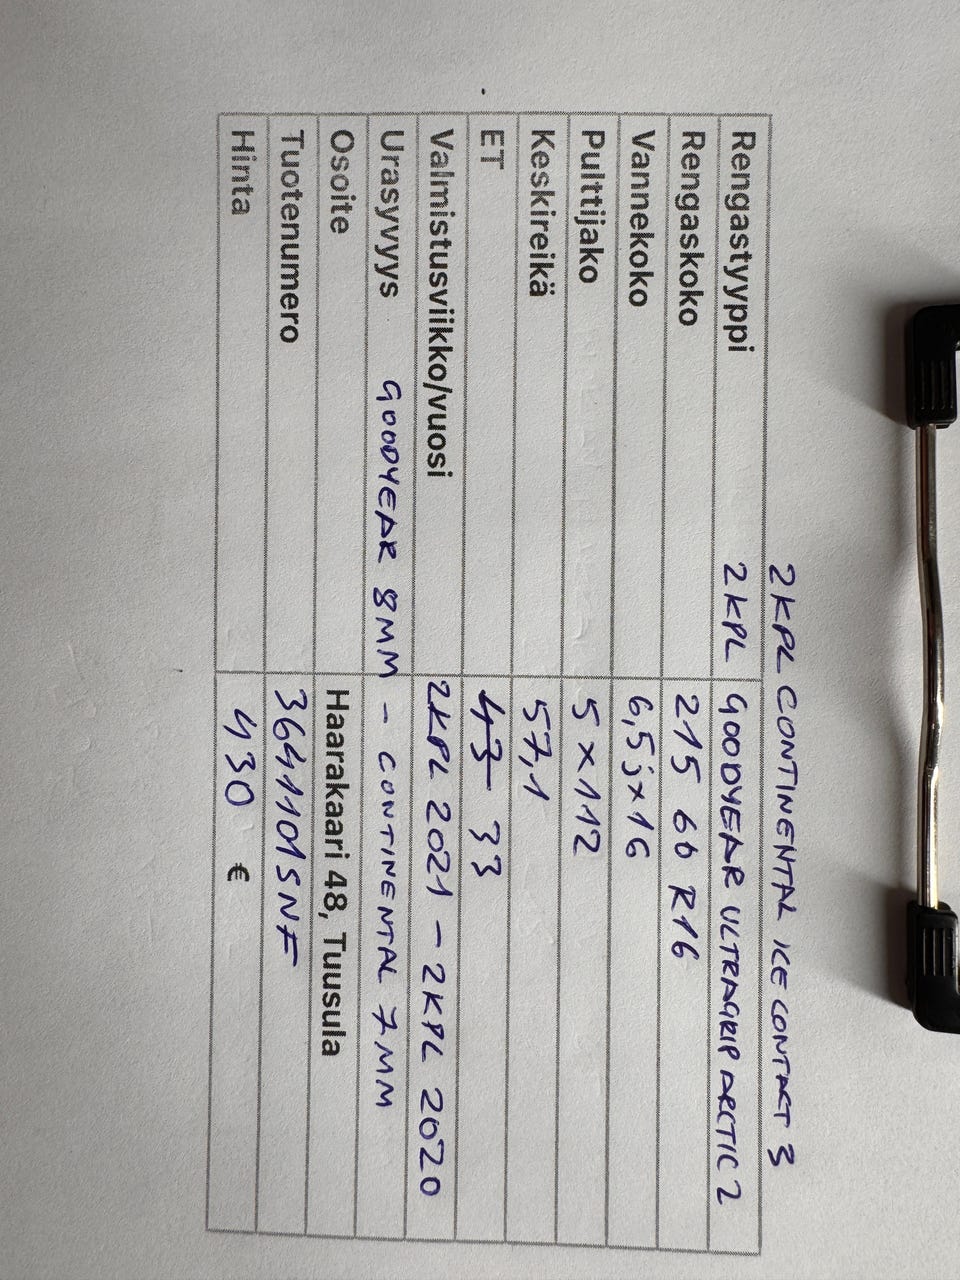 2 KPL CONTINENTAL ICE CONTACT 3
Rengastyyppi 2 KPL GOODYEAR ULTRAGRIP ARCTIC 2
Rengaskoko 215 60 R16
Vannekoko 6,5j x 16
Pulttijako 5 x 112
Keskireikä 57,1
ET 43 33
Valmistusviikko/vuosi 2KPL 2021 - 2KPL 2020
Urasyvyys GOODYEAR 8MM - CONTINENTAL 7MM
Osoite Haarakaari 48, Tuusula
Tuotenumero 3641101SNF
Hinta 430 €